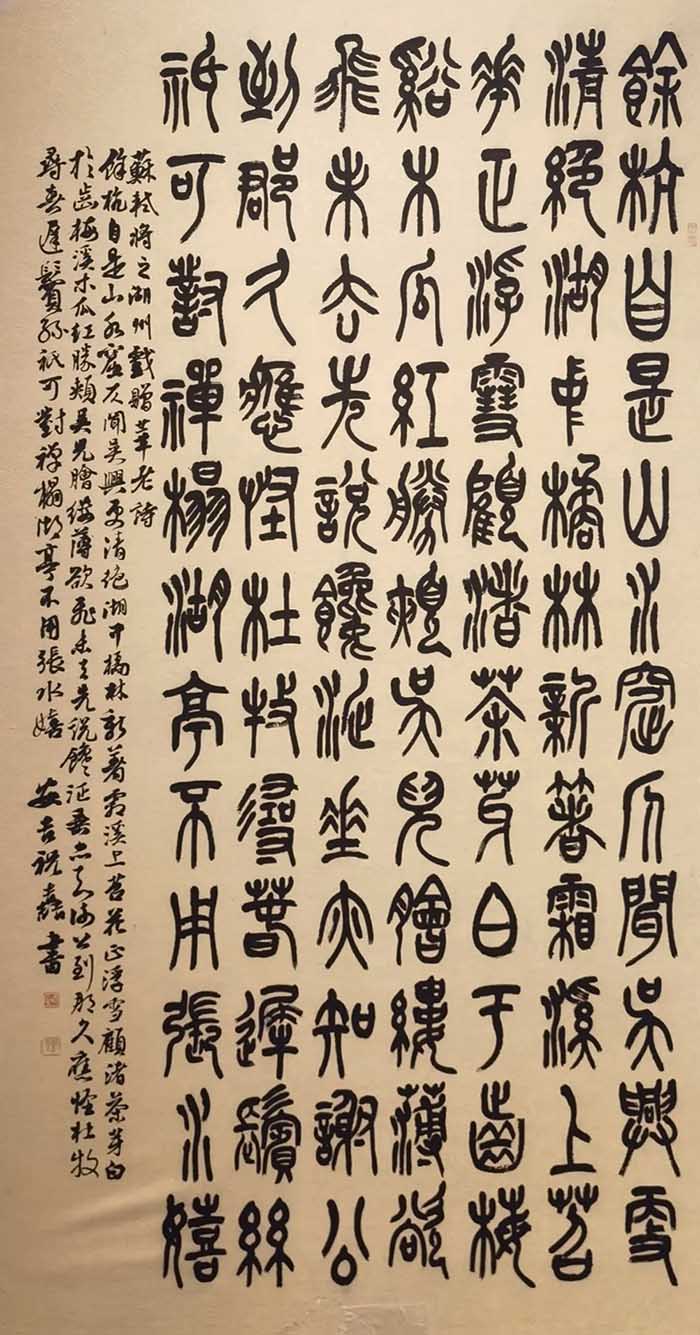 餘杭自是山水窟仄聞吳興更
清絕湖中橘林新著霜溪上苕
華正浮雪顧渚茶芽白于齒梅
谿木瓜紅勝頰吳兒膾縷薄欲
飛未去先說饞涎垂亦知謝公
到郡久應怪杜牧尋春遲鬢絲
祇可對禪榻湖亭不用張水嬉
蘇軾將之湖州戲贈莘老詩
餘杭自是山水窟仄聞吳興更清絕湖中橘林新著霜溪上苕花正浮雪顧渚茶芽白
於齒梅溪木瓜紅勝頰吳兒膾縷薄欲飛未去先說饞涎垂亦知謝公到郡久應怪杜牧
尋春遲鬢絲祇可對禪榻湖亭不用張水嬉
安吉祝書